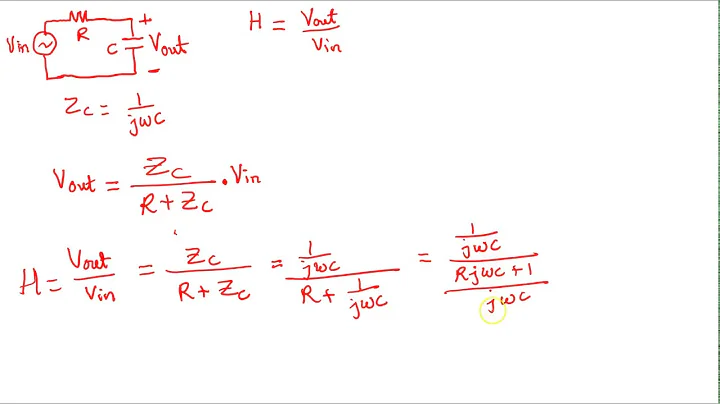 Vin R C + Vout -
H = Vout / Vin
Zc = 1 / jwc
Vout = Zc / R + Zc . Vin
H = Vout / Vin = Zc / R + Zc = 1 / jwc / R + 1 / jwc = 1 / jwc / Rjwc + 1 / jwc